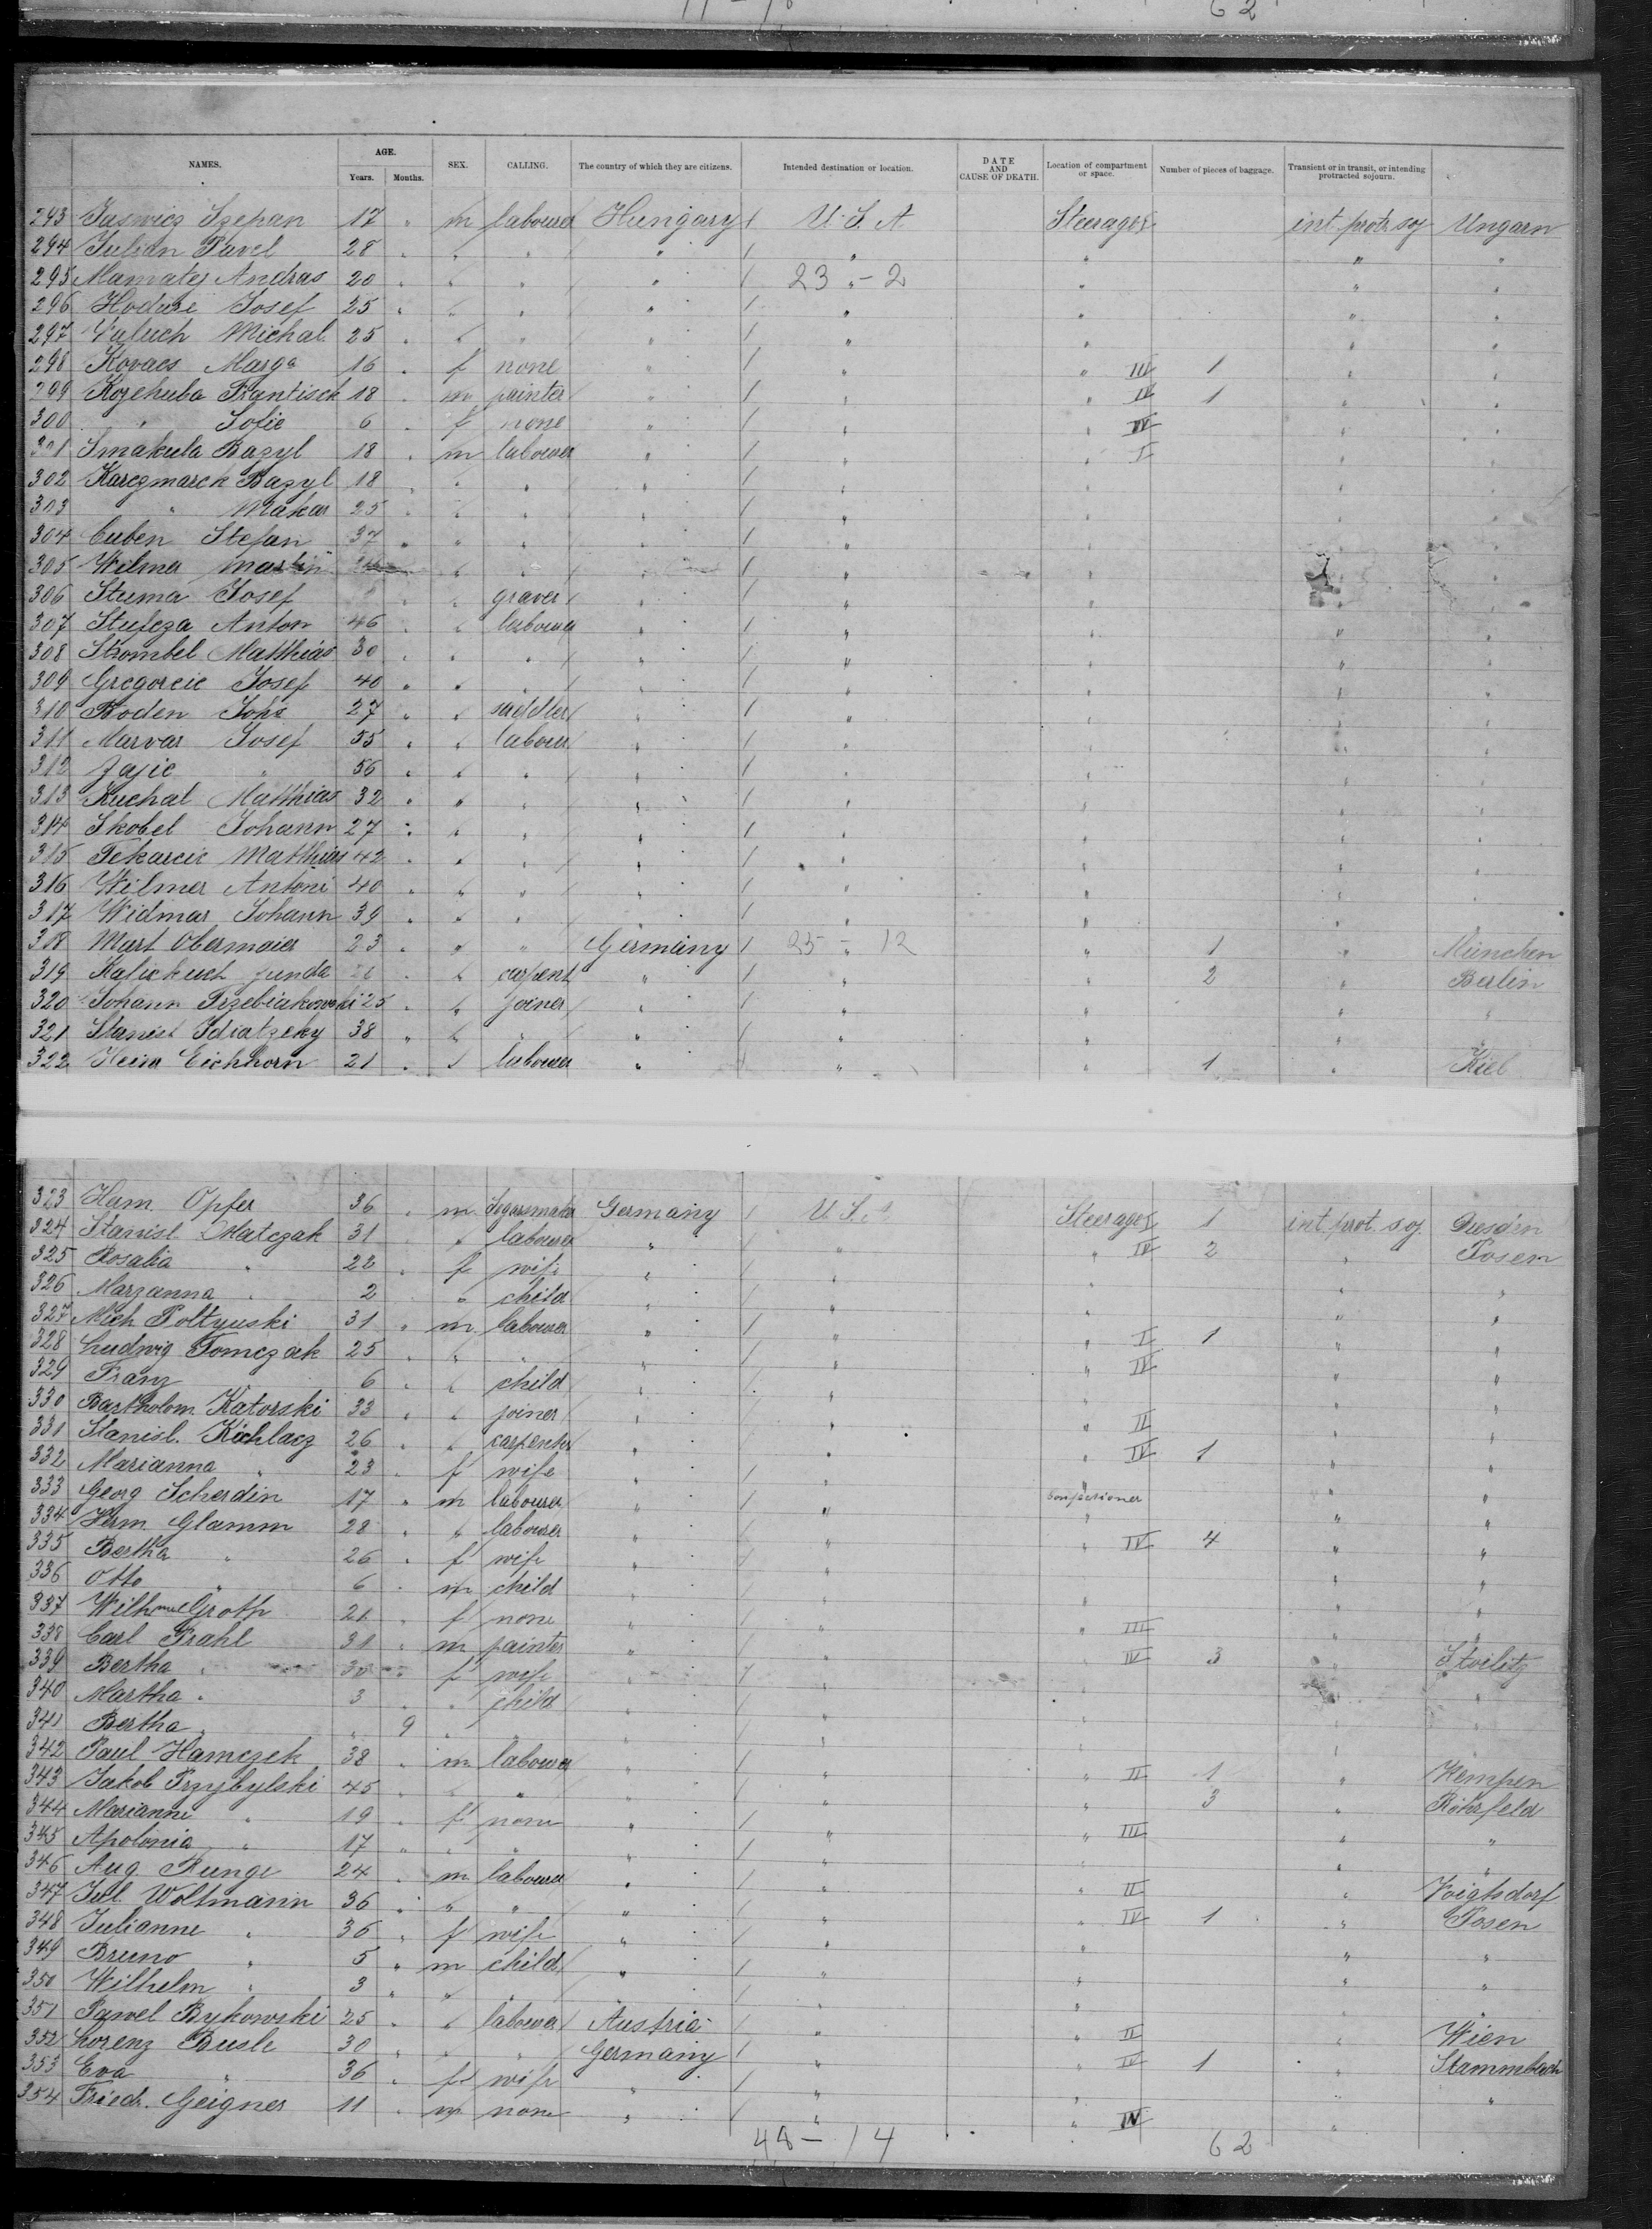 11-18 62
NAMES. AGE. Years. Months. SEX. CALLING. The country of which they are citizens. Intended destination or location. DATE AND CAUSE OF DEATH. Location of compartment or space. Number of pieces of baggage. Transient or in transit, or intending protracted sojourn.
293 Szepan 17 " m labourer Hungary / U.S.A Steerage int. protr. soj Ungarn
294 Julian Pavel 28 " " " " / " " " "
295 Mamatej Andras 20 " " " " / 23 " - 2 " " "
296 Josef 25 " " " " / " " " "
297 Michal 25 " " " " / " " " "
298 Kovacs Marga 16 " f none " / " " III 1 " "
299 Kozehuba Frantisek 18 " m painter " / " " IV 1 " "
300 " Sofie 6 " f none " / " " IV " "
301 Smakula Bazyl 18 " m labourer " / " " I " "
302 Karczmarek Bazyl 18 " " " " / " " " "
303 " Makar 25 " " " " / " " " "
304 Cuben Stefan 37 " " " " / " " " "
305 Wilmer Martin " " " " / " " " "
306 Stuma Josef " " graver " / " " " "
307 Anton 46 " " labourer " / " " " "
308 Strombel Matthias 30 " " " " / " " " "
309 Gregorcic Josef 40 " " " " / " " " "
310 Boden Johs 27 " " saddler " / " " " "
311 Marvar Josef 55 " " labour " / " " " "
312 Zajic " 56 " " " " / " " " "
313 Kuchal Matthias 32 " " " " / " " " "
314 Skobel Johann 27 " " " " / " " " "
315 Tekarcic Matthias 42 " " " " / " " " "
316 Wilmer Antoni 40 " " " " / " " " "
317 Widmar Johann 39 " " " " / " " " "
318 Mart Obermaier 23 " " " Germany / 25 " - 12 " 1 " München
319 " " carpent " / " " 2 " Berlin
320 Johann Trzebiakowski 25 " " joiner " / " " " "
321 Stanisl 38 " " " " / " " "
322 Heinr Eichhorn 21 " " labourer " / " " 1 " Kiel
323 Herm. Opfer 36 " m Germany / U.S.A Steerage 1 int. prot. soj. Dresden
324 Stanisl Matczak 31 " " labourer " / " " IV 2 " Posen
325 Rosalia " 22 " f wife " / " " " "
326 Marzanna " 2 " child " / " " " "
327 Mich Poltyuski 31 " m labourer " / " " I 1 " "
328 Ludwig Tomczak 25 " " " " / " " IV " "
329 Franz 6 " " child " / " " " "
330 Bartholom Katorski 33 " " joiner " / " " II " "
331 Stanisl. Kichlacz 26 " " carpenter " / " " IV 1 " "
332 Marianna " 23 " f wife " / " " " "
333 Georg Scherdin 17 " m labourer " / " confectioner " "
334 Herm Glamm 28 " " labourer " / " " IV 4 " "
335 Bertha " 26 " f wife " / " " " "
336 Otto " 6 " m child " / " " " "
337 Wilhmne Groth 21 " f none " / " " III " "
338 Carl Prahl 31 " m painter " / " " IV 3 "
339 Bertha " 30 " f wife " / " " " "
340 Martha " 3 " " child " / " " " "
341 Bertha " " 9 " " " / " " " "
342 Paul Hamczek 38 " m labourer " / " " II 1 " Kempen
343 Jakob Przybylski 45 " " " " / " " 3 " Röhrfeld
344 Marianne " 19 " f none " / " " III " "
345 Apolonia " 17 " " " " / " " " "
346 Aug Runge 24 " m labourer " / " " II " Voigtsdorf
347 Jul Woltmann 36 " " " " / " " IV 1 " Posen
348 Julianne " 36 " f wife " / " " " "
349 Bruno " 5 " m child " / " " " "
350 Wilhelm " 3 " " " " / " " " "
351 Pawel Bykowski 25 " " labourer Austria / " " II " Wien
352 Lorenz 30 " " " Germany / " " IV 1 " Stammbach
353 Eva " 36 " f wife " / " " " "
354 Friedr. Geigner 11 " m none " / " " IV "
48-14 62